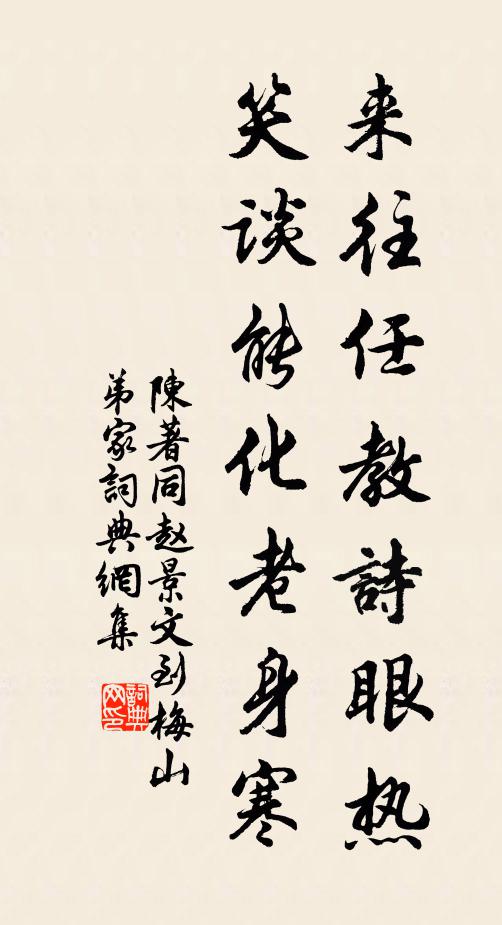 来往任教詩眼热
笑谈能化老身寒
陳著同赵景文到梅山
弟家詞典網集
詞典网印